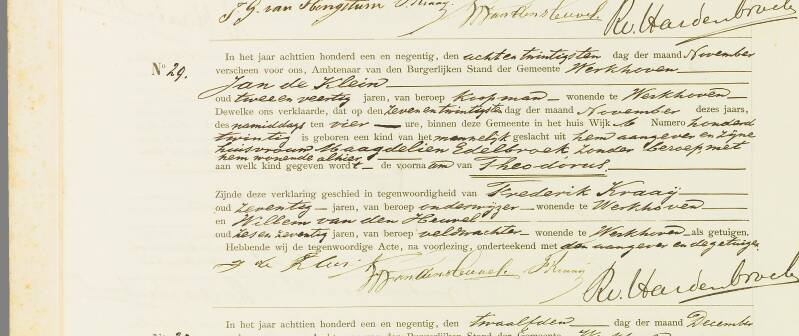 F. G. van Hengstum F. Kraay W van den Heuvel Rv. Hardenbroek
No 29.
In het jaar achttien honderd een en negentig, den achtentwintigsten dag der maand November
verscheen voor ons, Ambtenaar van den Burgerlijken Stand der Gemeente Werkhoven
Jan de Klein
oud twee en veertig jaren, van beroep koopman wonende te Werkhoven
Dewelke ons verklaarde, dat op den zevenentwintigsten dag der maand November dezes jaars,
des namiddags ten vier ure, binnen deze Gemeente in het huis Wijk b Numero honderd
twintig is geboren een kind van het mannelijk geslacht uit hem aangever en zijne
huisvrouw Maagdelien Edelbroek zonder beroep, met
hem wonende alhier
aan welk kind gegeven wordt de voornaam van Theodorus.
Zijnde deze verklaring geschied in tegenwoordigheid van Frederik Kraay
oud zeventig jaren, van beroep onderwijzer wonende te Werkhoven
en Willem van den Heuvel
oud zes en zeventig jaren, van beroep veldwachter wonende te Werkhoven als getuigen.
Hebbende wij de tegenwoordige Acte, na voorlezing, onderteekend met den aangever en de getuigen.
J de Klein W van den Heuvel F Kraay Rv. Hardenbroek
In het jaar achttien honderd een en negentig, den twaalfden dag der maand December
Ambtenaar van den Burgerlijken Stand der Gemeente